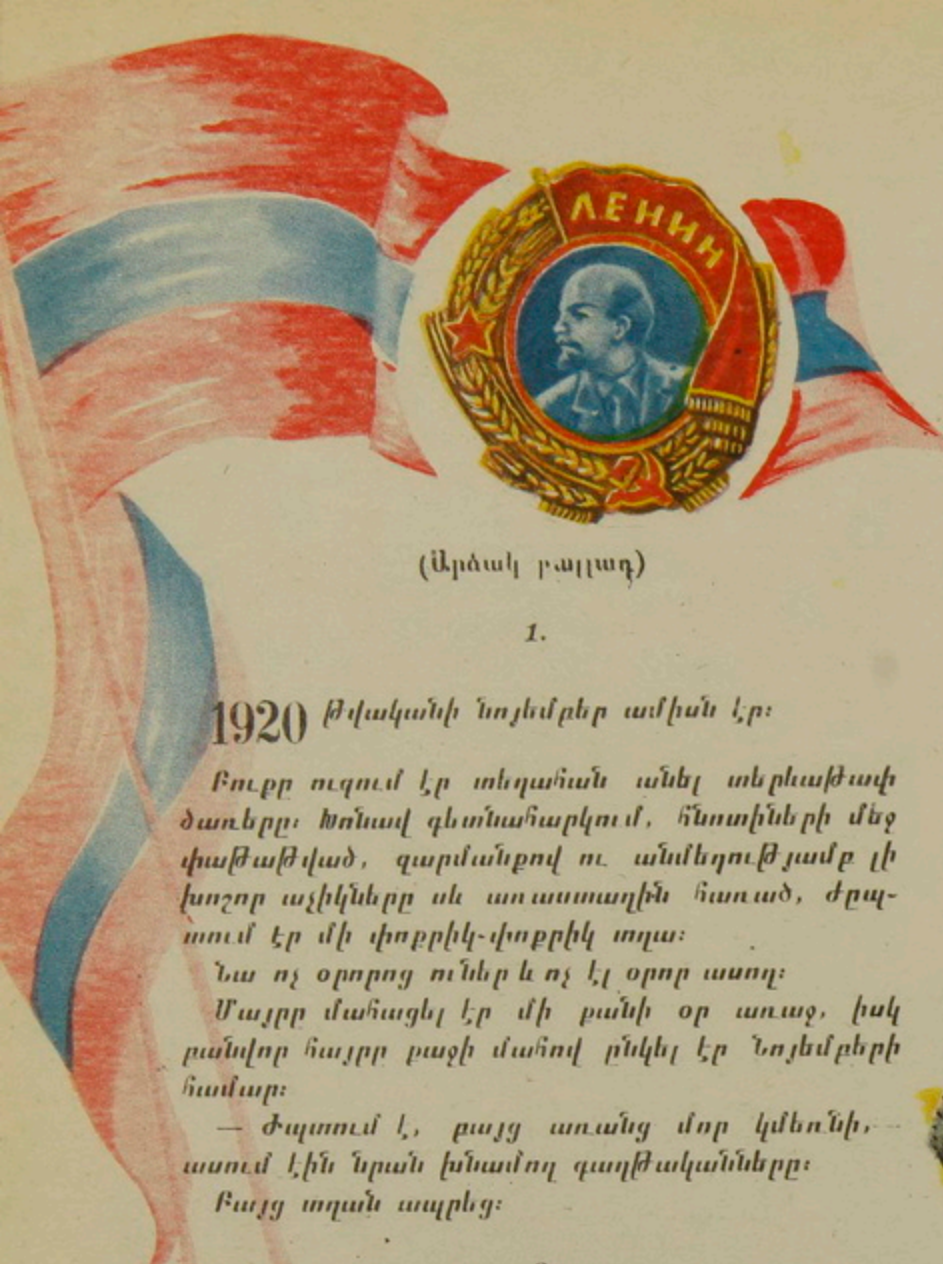 ЛЕНИН
(Արձակ բալլադ)
1.
1920 թվականի նոյեմբեր ամիսն էր։
Բուքը ուզում էր տեղահան անել տերևաթափ
ծառերը։ Խոնավ գետնահարկում, հնոտիների մեջ
փաթաթված, զարմանքով ու անմեղությամբ լի
խոշոր աչիկները սև առաստաղին հառած, ժըպ-
տում էր մի փոքրիկ-փոքրիկ տղա։
Նա ոչ օրորոց ուներ և ոչ էլ օրոր ասող։
Մայրը մահացել էր մի քանի օր առաջ, իսկ
բանվոր հայրը քաջի մահով ընկել էր Նոյեմբերի
համար։
— Ժպտում է, բայց առանց մոր կմեռնի,—
ասում էին նրան խնամող գաղթականները։
Բայց տղան ապրեց։